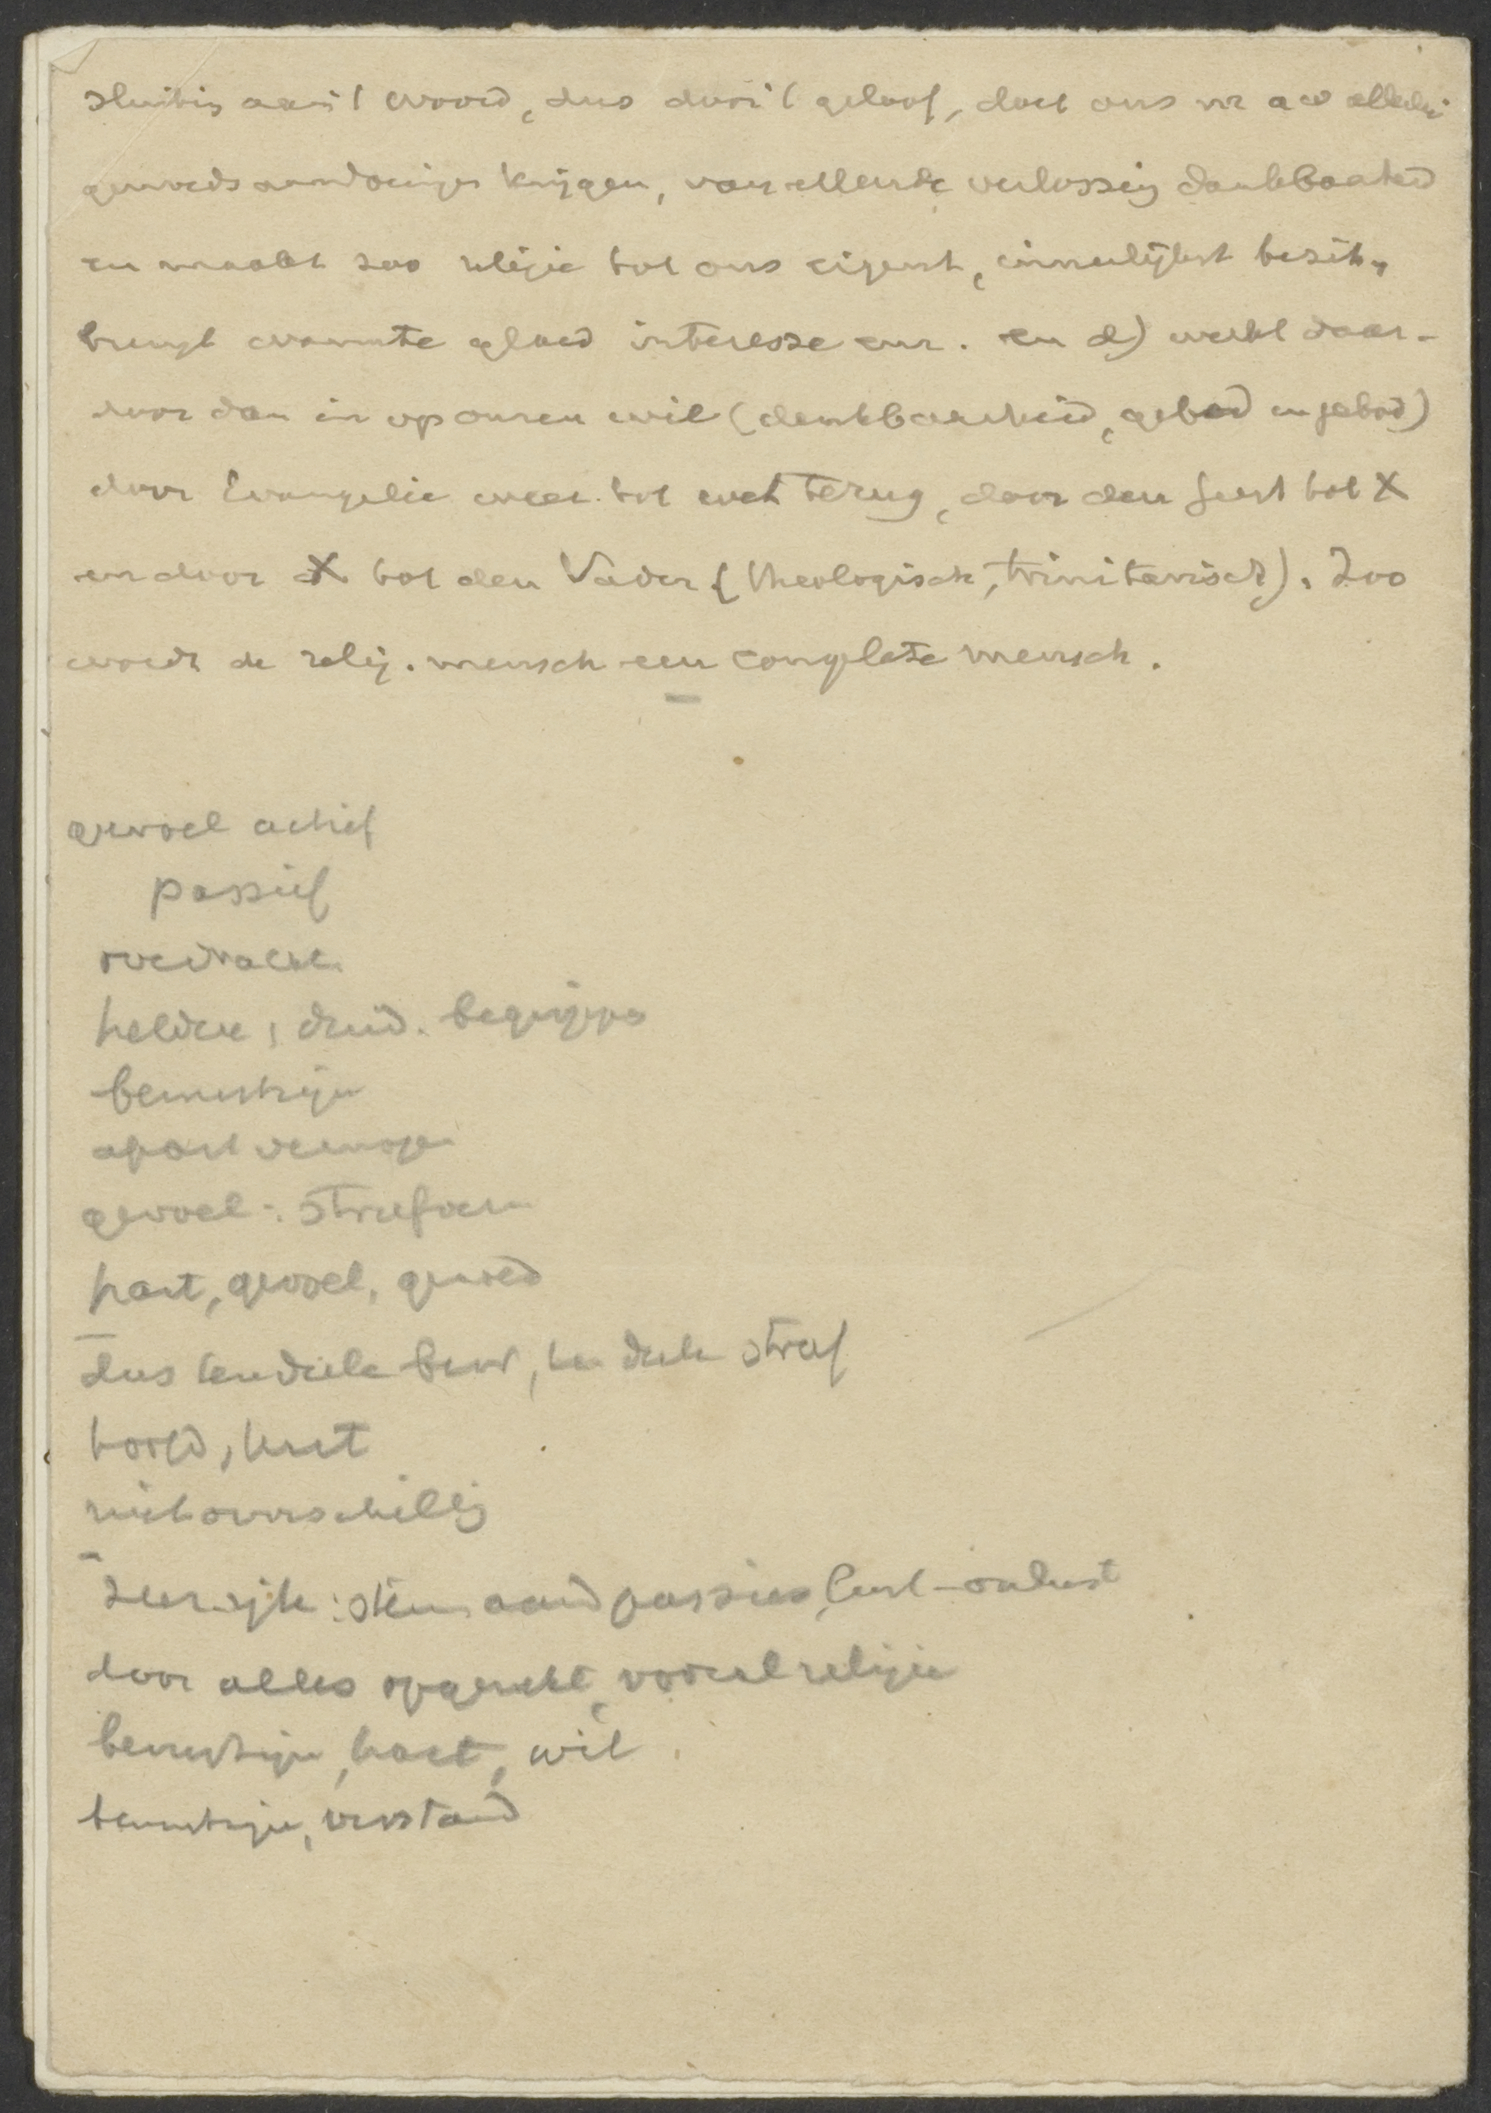 sluiting aan 't woord, dus door 't geloof, doet ons allerlei
gemoedsaandoeningen krijgen, van ellende verlossing dankbaarheid
en maakt zoo religie tot ons eigenst, innerlijkst bezit,
brengt warmte gloed interesse enz. en d) werkt daar-
door dan in op onzen wil (dankbaarheid, gebed en gebod)
door Evangelie weer tot wet terug, door den Geest tot X
en door X tot den Vader (theologisch, trinitarisch). Zoo
wordt de relig. mensch een complete mensch.
gevoel actief
passief
overdracht
heldere, duid. begrippen
bewustzijn
apart vermogen
gevoel:
hart, gevoel, gemoed
dus ten deele bew, ten deele stref
hoofd, hart
niet onverschillig
Zeer rijk: stem aand passies, lust-onlust
door alles opgewekt, vooral religie
bewustzijn, hart, wil.
bewustzijn, verstand